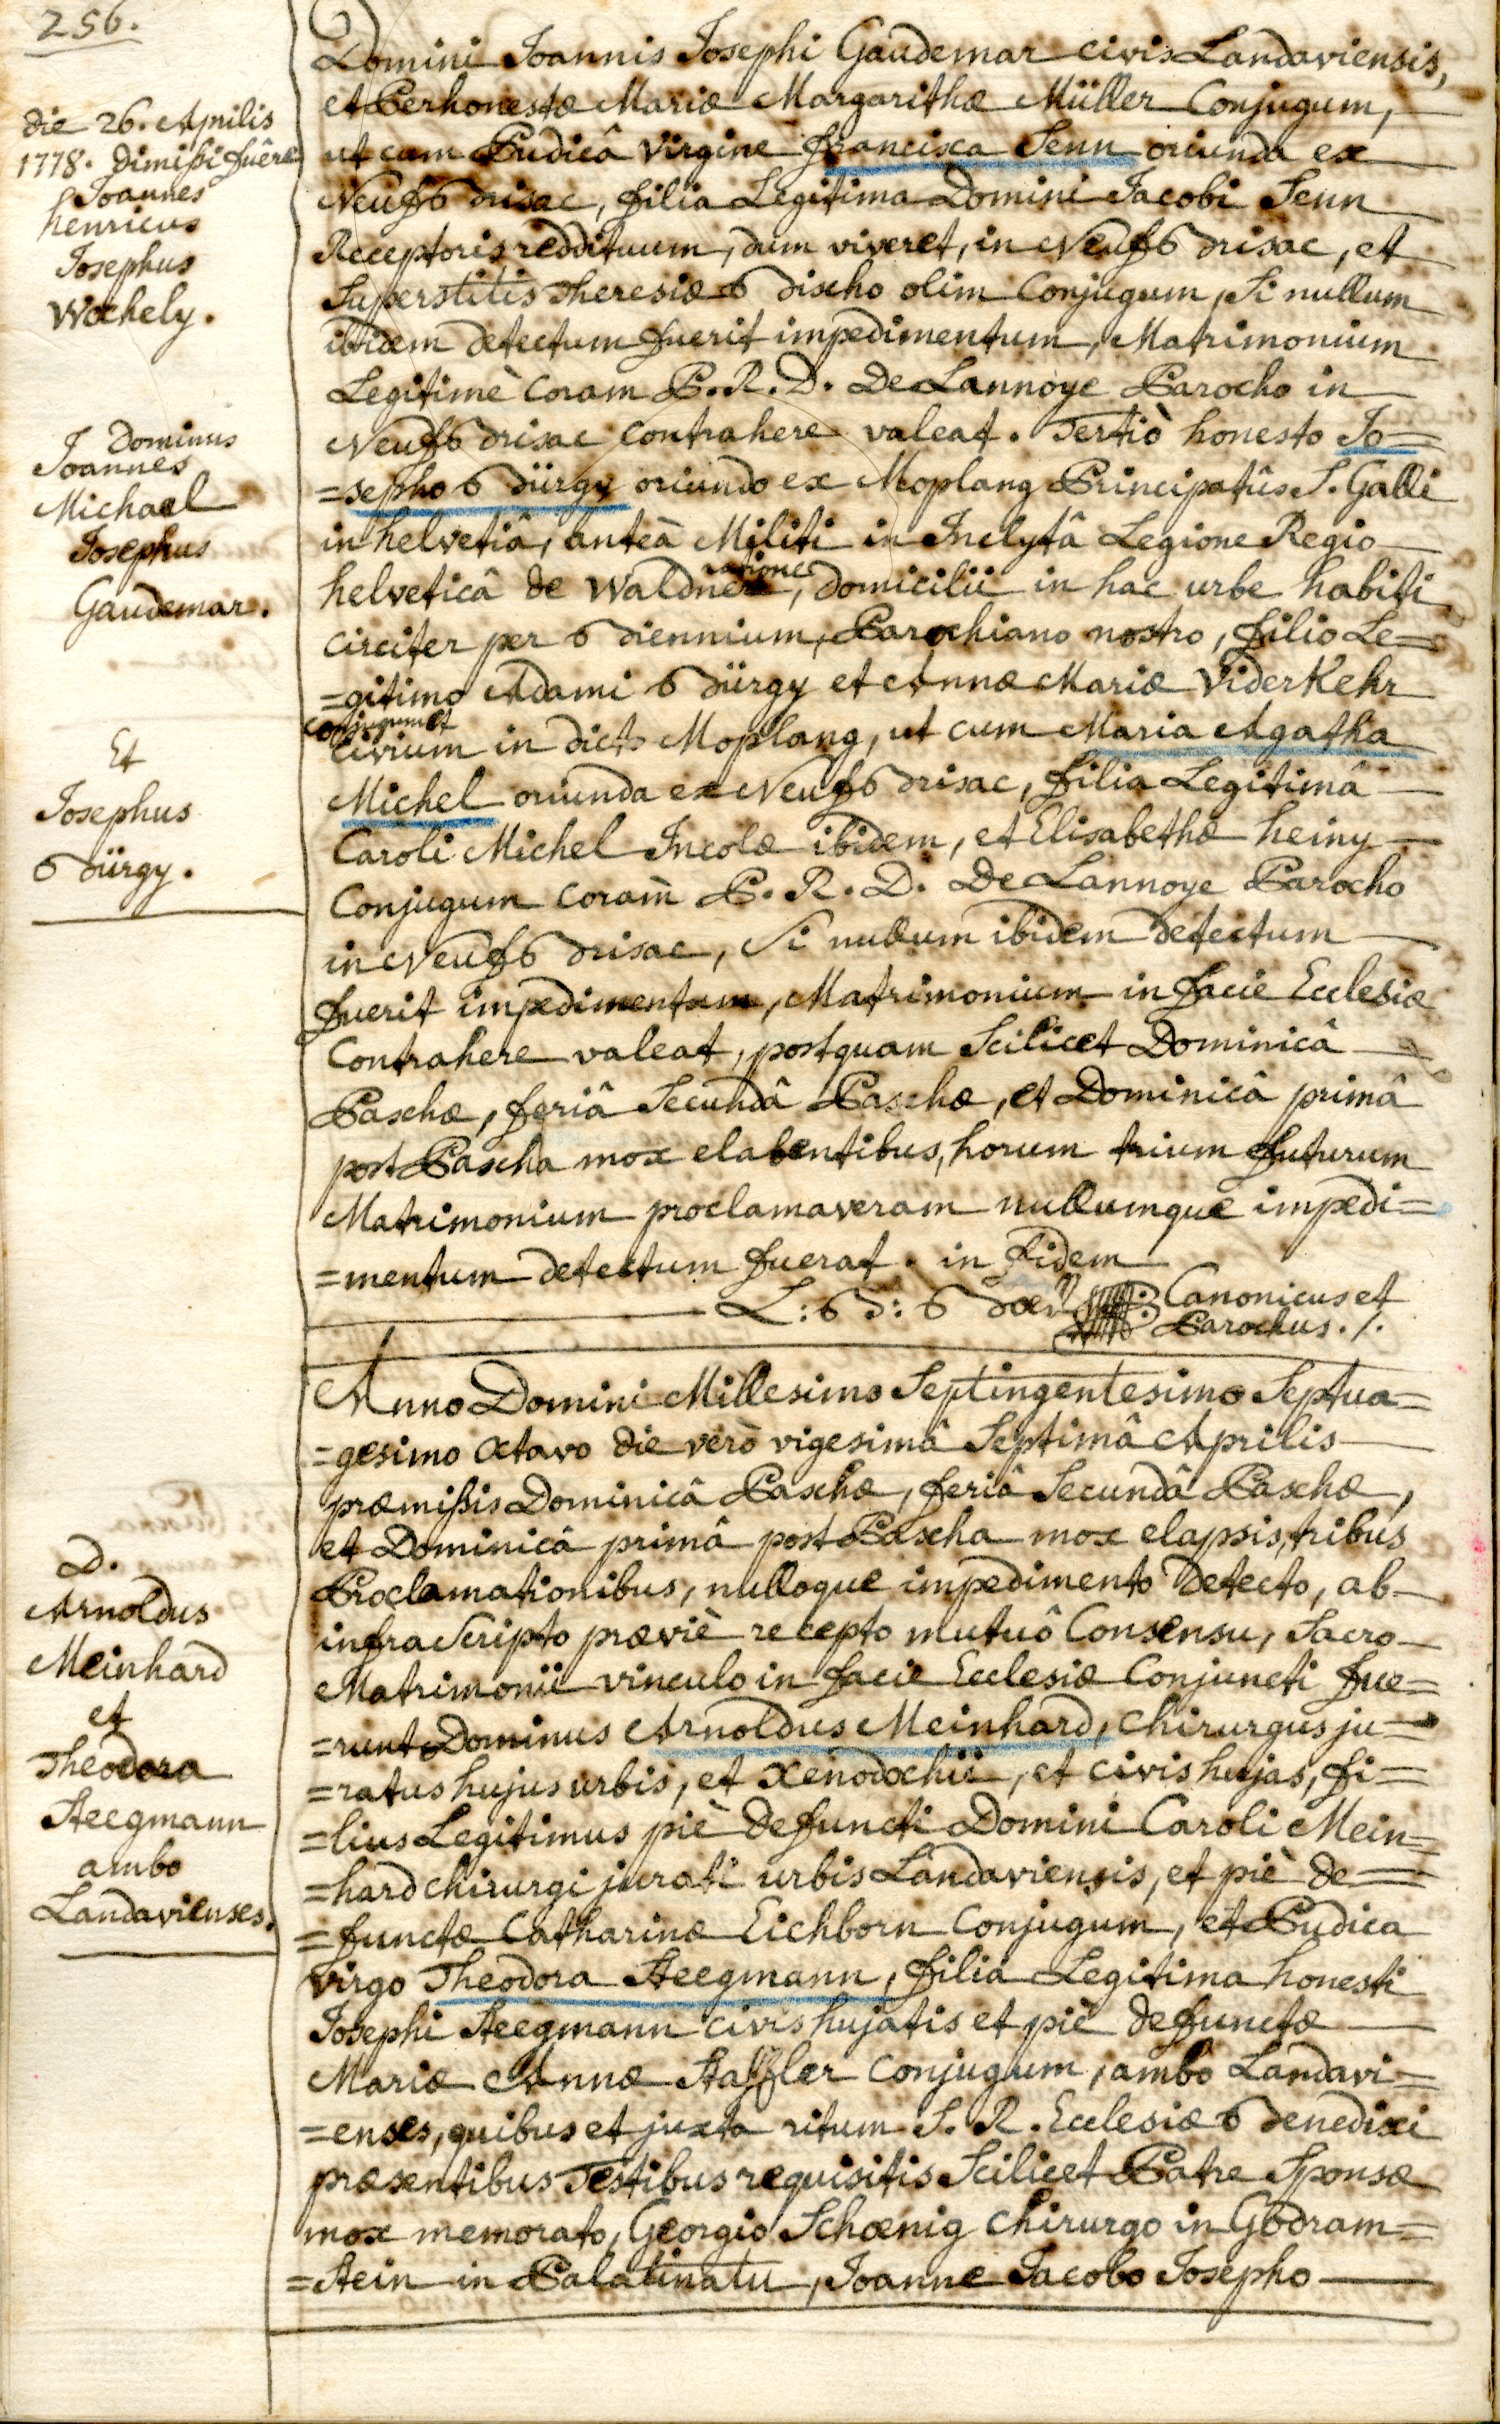 256.
die 26. Aprilis
1778. dimissi fuêre
Joannes
henricus
Josephus
Wochely.
Dominus
Joannes
Michael
Josephus
Gaudemar.
Et
Josephus
Bürgy.
D.
Arnoldus
Meinhard
et
Theodora
Steegmann
ambo
Landavienses.
Domini Joannis Josephi Gaudemar civis Landaviensis,
et Perhonestæ Mariæ Margarithæ Müller Conjugum,
ut cum Pudicâ Virgine francisca Senn oriunda ex
Neufbrisac, filia Legitima Domini Jacobi Senn
Receptoris reddituum, dum viveret, in Neufbrisac, et
Superstitis Theresiæ Bischo olim Conjugum, Si nullum
ibidem detectum fuerit impedimentum, Matrimonium
Legitimè coram P. R. D. De Lannoye Parocho in
Neufbrisac contrahere valeat. Tertiò honesto Jo=
=sepho Bürgy oriundo ex Moplang Principatûs S. Galli
in helvetiâ, anteà Militi in Inclytâ Legione Regio
helveticâ de Waldner, ratione domicilii in hac urbe habiti
circiter per biennium, Parochiano nostro, filio Le=
=gitimo Adami Bürgy et Annæ Mariæ Viderkehr
conjugum et
civium in dicto Moplang, ut cum Maria Agatha
Michel oriunda ex Neufbrisac, filia Legitimâ
Caroli Michel Incolæ ibidem, et Elisabethæ heiny
Conjugum coram P. R. D. De Lannoye Parocho
in Neufbrisac, Si nullum ibidem detectum
fuerit impedimentum, Matrimonium in facie Ecclesiæ
Contrahere valeat, postquam Scilicet Dominicâ
Paschæ, feriâ Secundâ Paschæ, et Dominicâ primâ
post Pascha mox elabentibus, horum trium futurum
Matrimonium proclamaveram nullumque impedi=
=mentum detectum fuerat. in fidem
Canonicus et
Parochus. /.
Anno Domini Millesimo Septingentesimo Septua=
=gesimo octavo die verò vigesimâ Septimâ Aprilis
præmissis Dominicâ Paschæ, feriâ Secundâ Paschæ,
et Dominicâ primâ post Pascha mox elapsis, tribus
Proclamationibus, nulloque impedimento detecto, ab
infra Scripto præviè recepto mutuô Consensu, Sacro
Matrimonii vinculo in facie Ecclesiæ Conjuncti fue=
=runt Dominus Arnoldus Meinhard, chirurgus ju=
=ratus hujus urbis, et Xenodochii, et civis hujas, fi=
=lius Legitimus piè defuncti Domini Caroli Mein=
=hard chirurgi jurati urbis Landaviensis, et piè de=
=functæ Catharinæ Eichborn Conjugum, et Pudica
virgo Theodora Steegmann, filia Legitima honesti
Josephi Steegmann civis hujatis et piè defunctæ
Mariæ Annæ Staffler Conjugum, ambo Landavi=
=enses, quibus et juxta ritum S. R. Ecclesiæ benedixi
præsentibus Testibus requisitis Scilicet Patre Sponsæ
mox memorato, Georgio Schœnig chirurgo in Godram=
=stein in Palatinatu, Joanne Jacobo Josepho